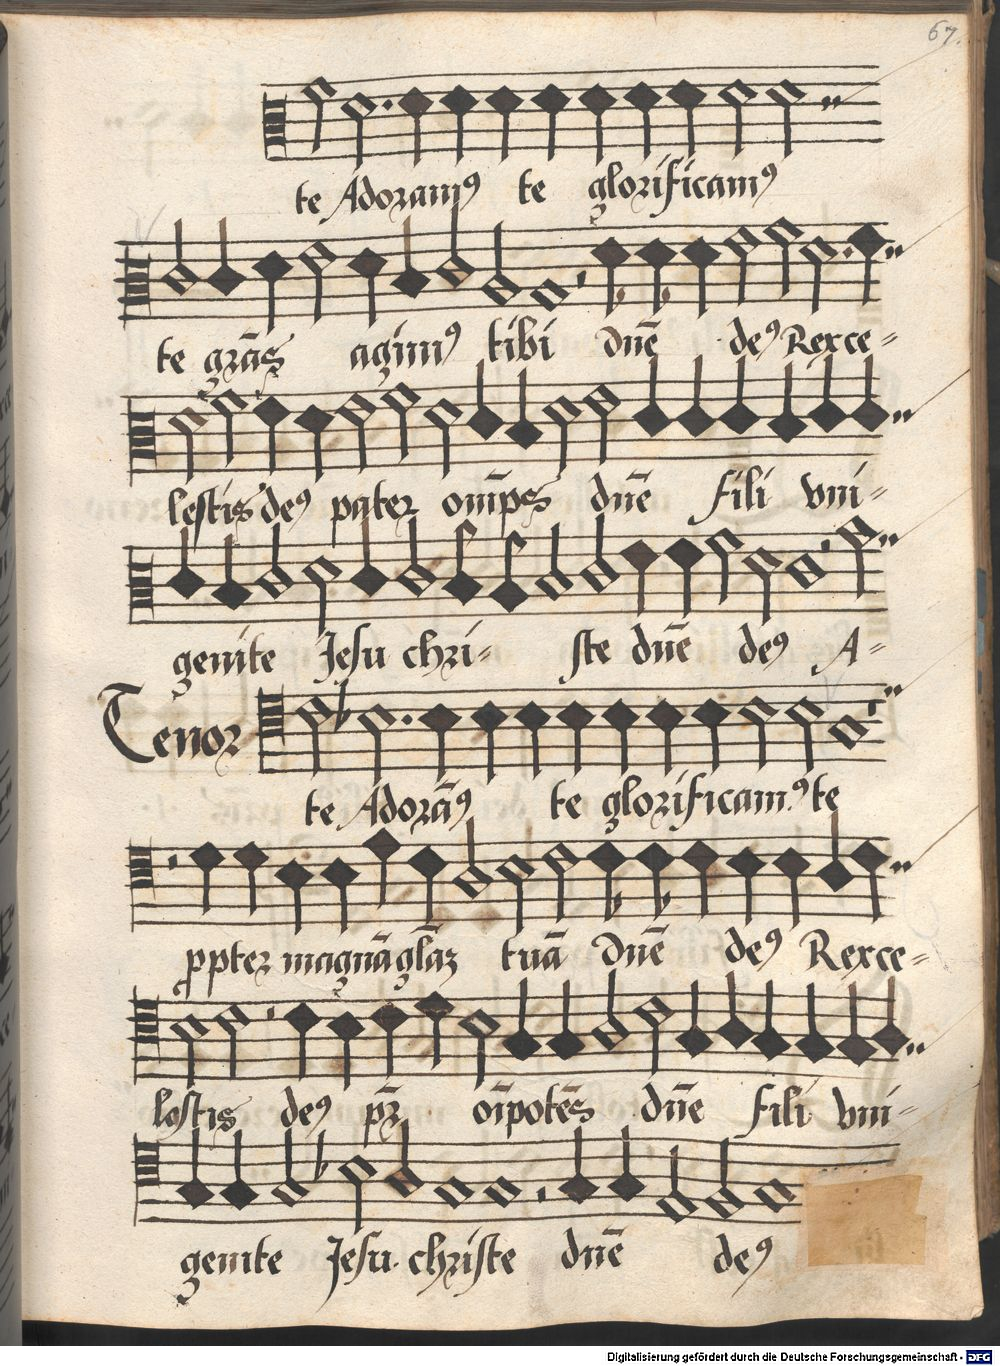 67.
te Adoramꝰ te glorificamꝰ
te gr̄as agimꝰ tibi dn̄e deꝰ Rex ce-
lestis deꝰ pater om̄ps dn̄e fili vni-
genite Jesu chri- ste dn̄e deꝰ A-
Tenor
te Adorāꝰ te glorificamꝰ te
ꝓpter magnā glāꝫ tuā dn̄e deꝰ Rex ce-
lestis deꝰ pr̄ oīpotēs dn̄e fili vni-
genite Jesu christe dn̄e deꝰ
Digitalisierung gefördert durch die Deutsche Forschungsgemeinschaft - DFG